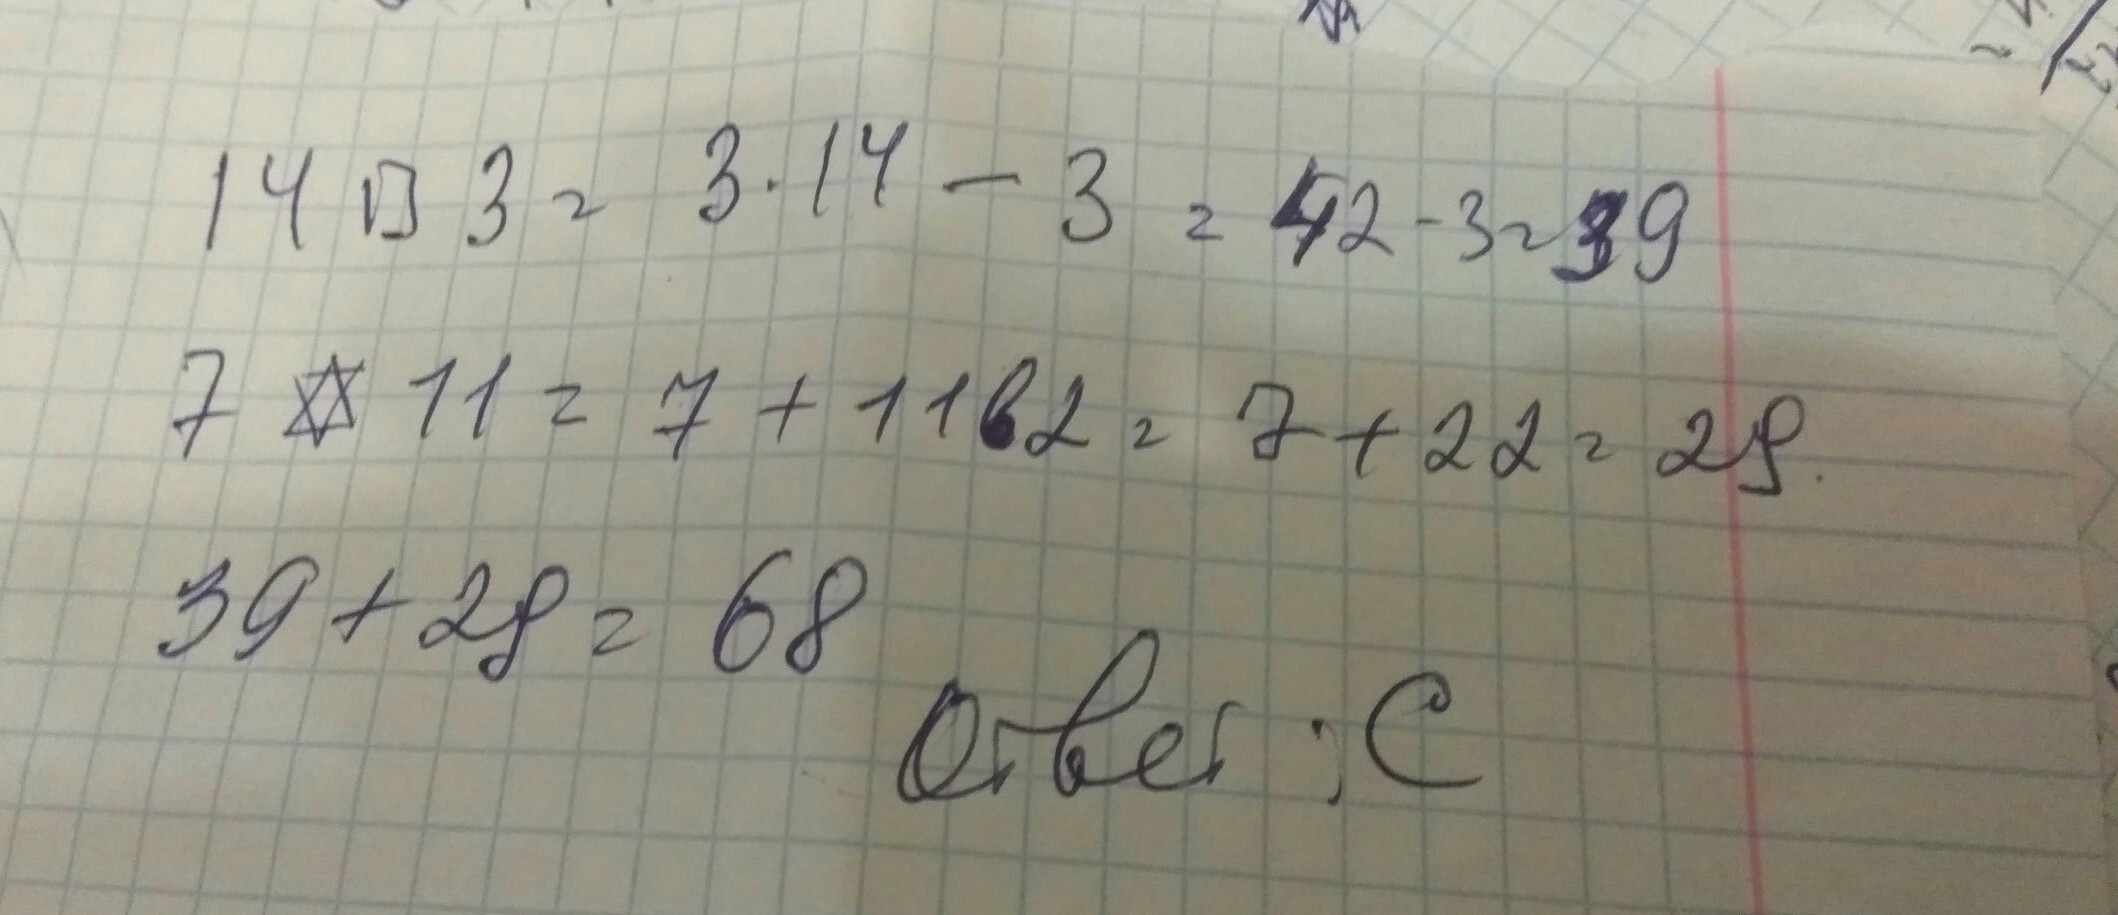 14 □ 3 = 3·14 - 3 = 42 - 3 = 39
7 ✡ 11 = 7 + 11·2 = 7 + 22 = 29.
39 + 29 = 68
Ответ: С